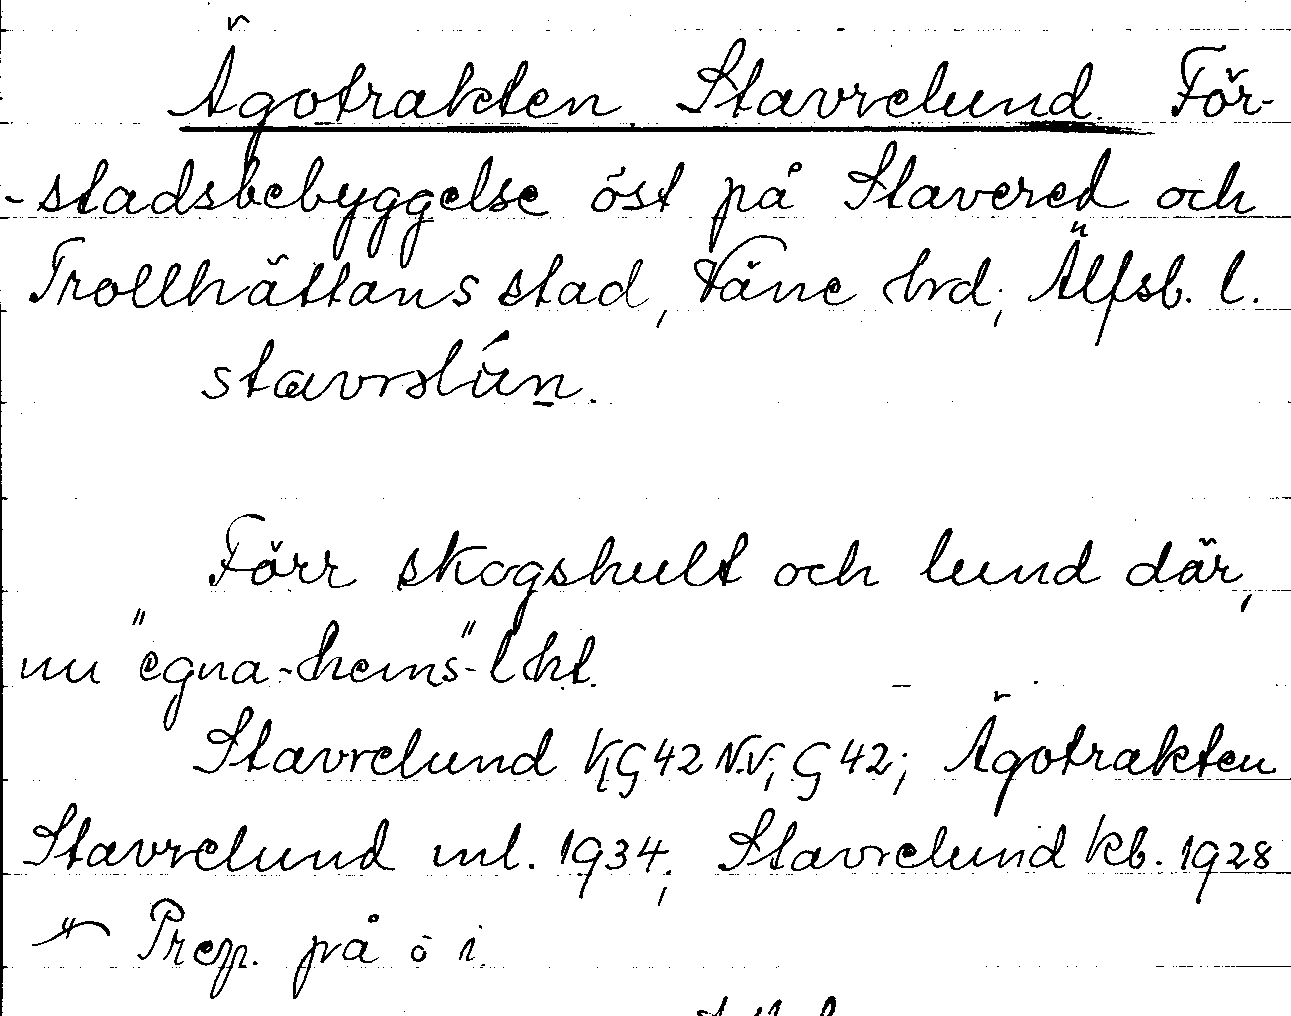 Ägotrakten Stavrelund. För-
-stadsbebyggelse öst på Stavered och
Trollhättans stad, Väne hrd; Älfsb. l.
stavrslún.
Förr skogshult och lund där,
nu "egna-hems"-lht.
Stavrelund KG 42 N.V; G 42; Ägotrakten
Stavrelund ml. 1934; Stavrelund kb. 1928
Prep. på o i.